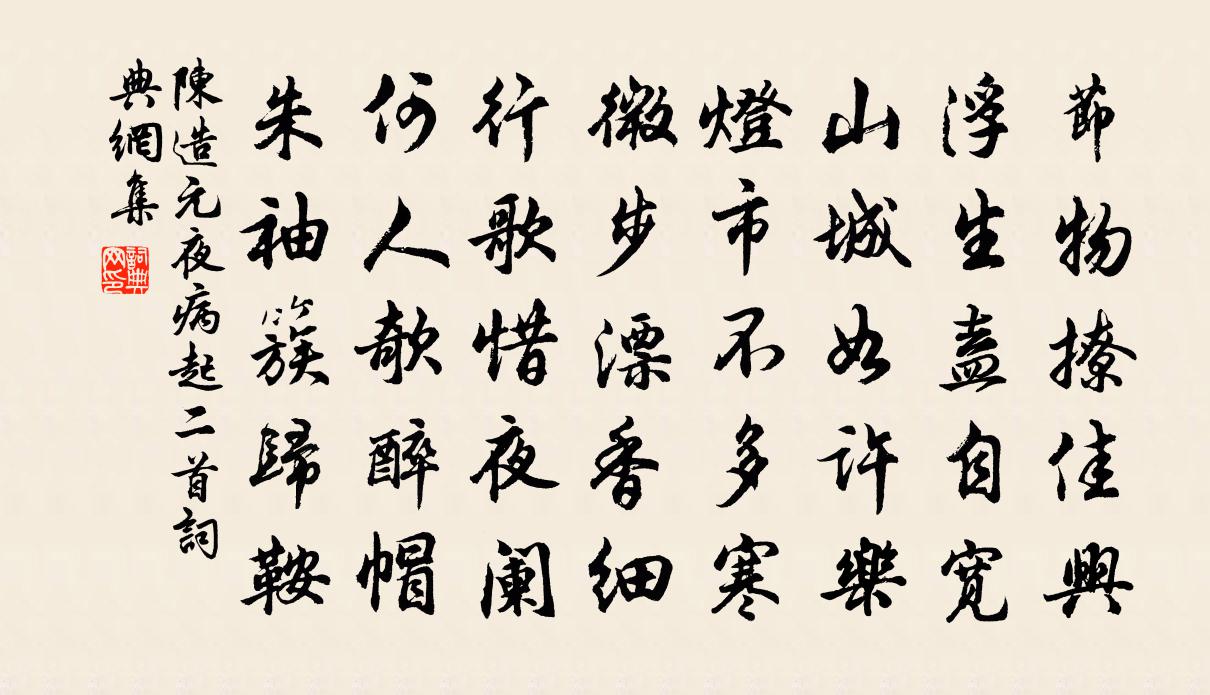 節物撩佳興
浮生盍自寬
山城如許樂
燈市不多寒
微步漂香細
行歌惜夜闌
何人欹醉帽
朱袖簇歸鞍
陳造元夜病起二首詞
典網集
詞典網印